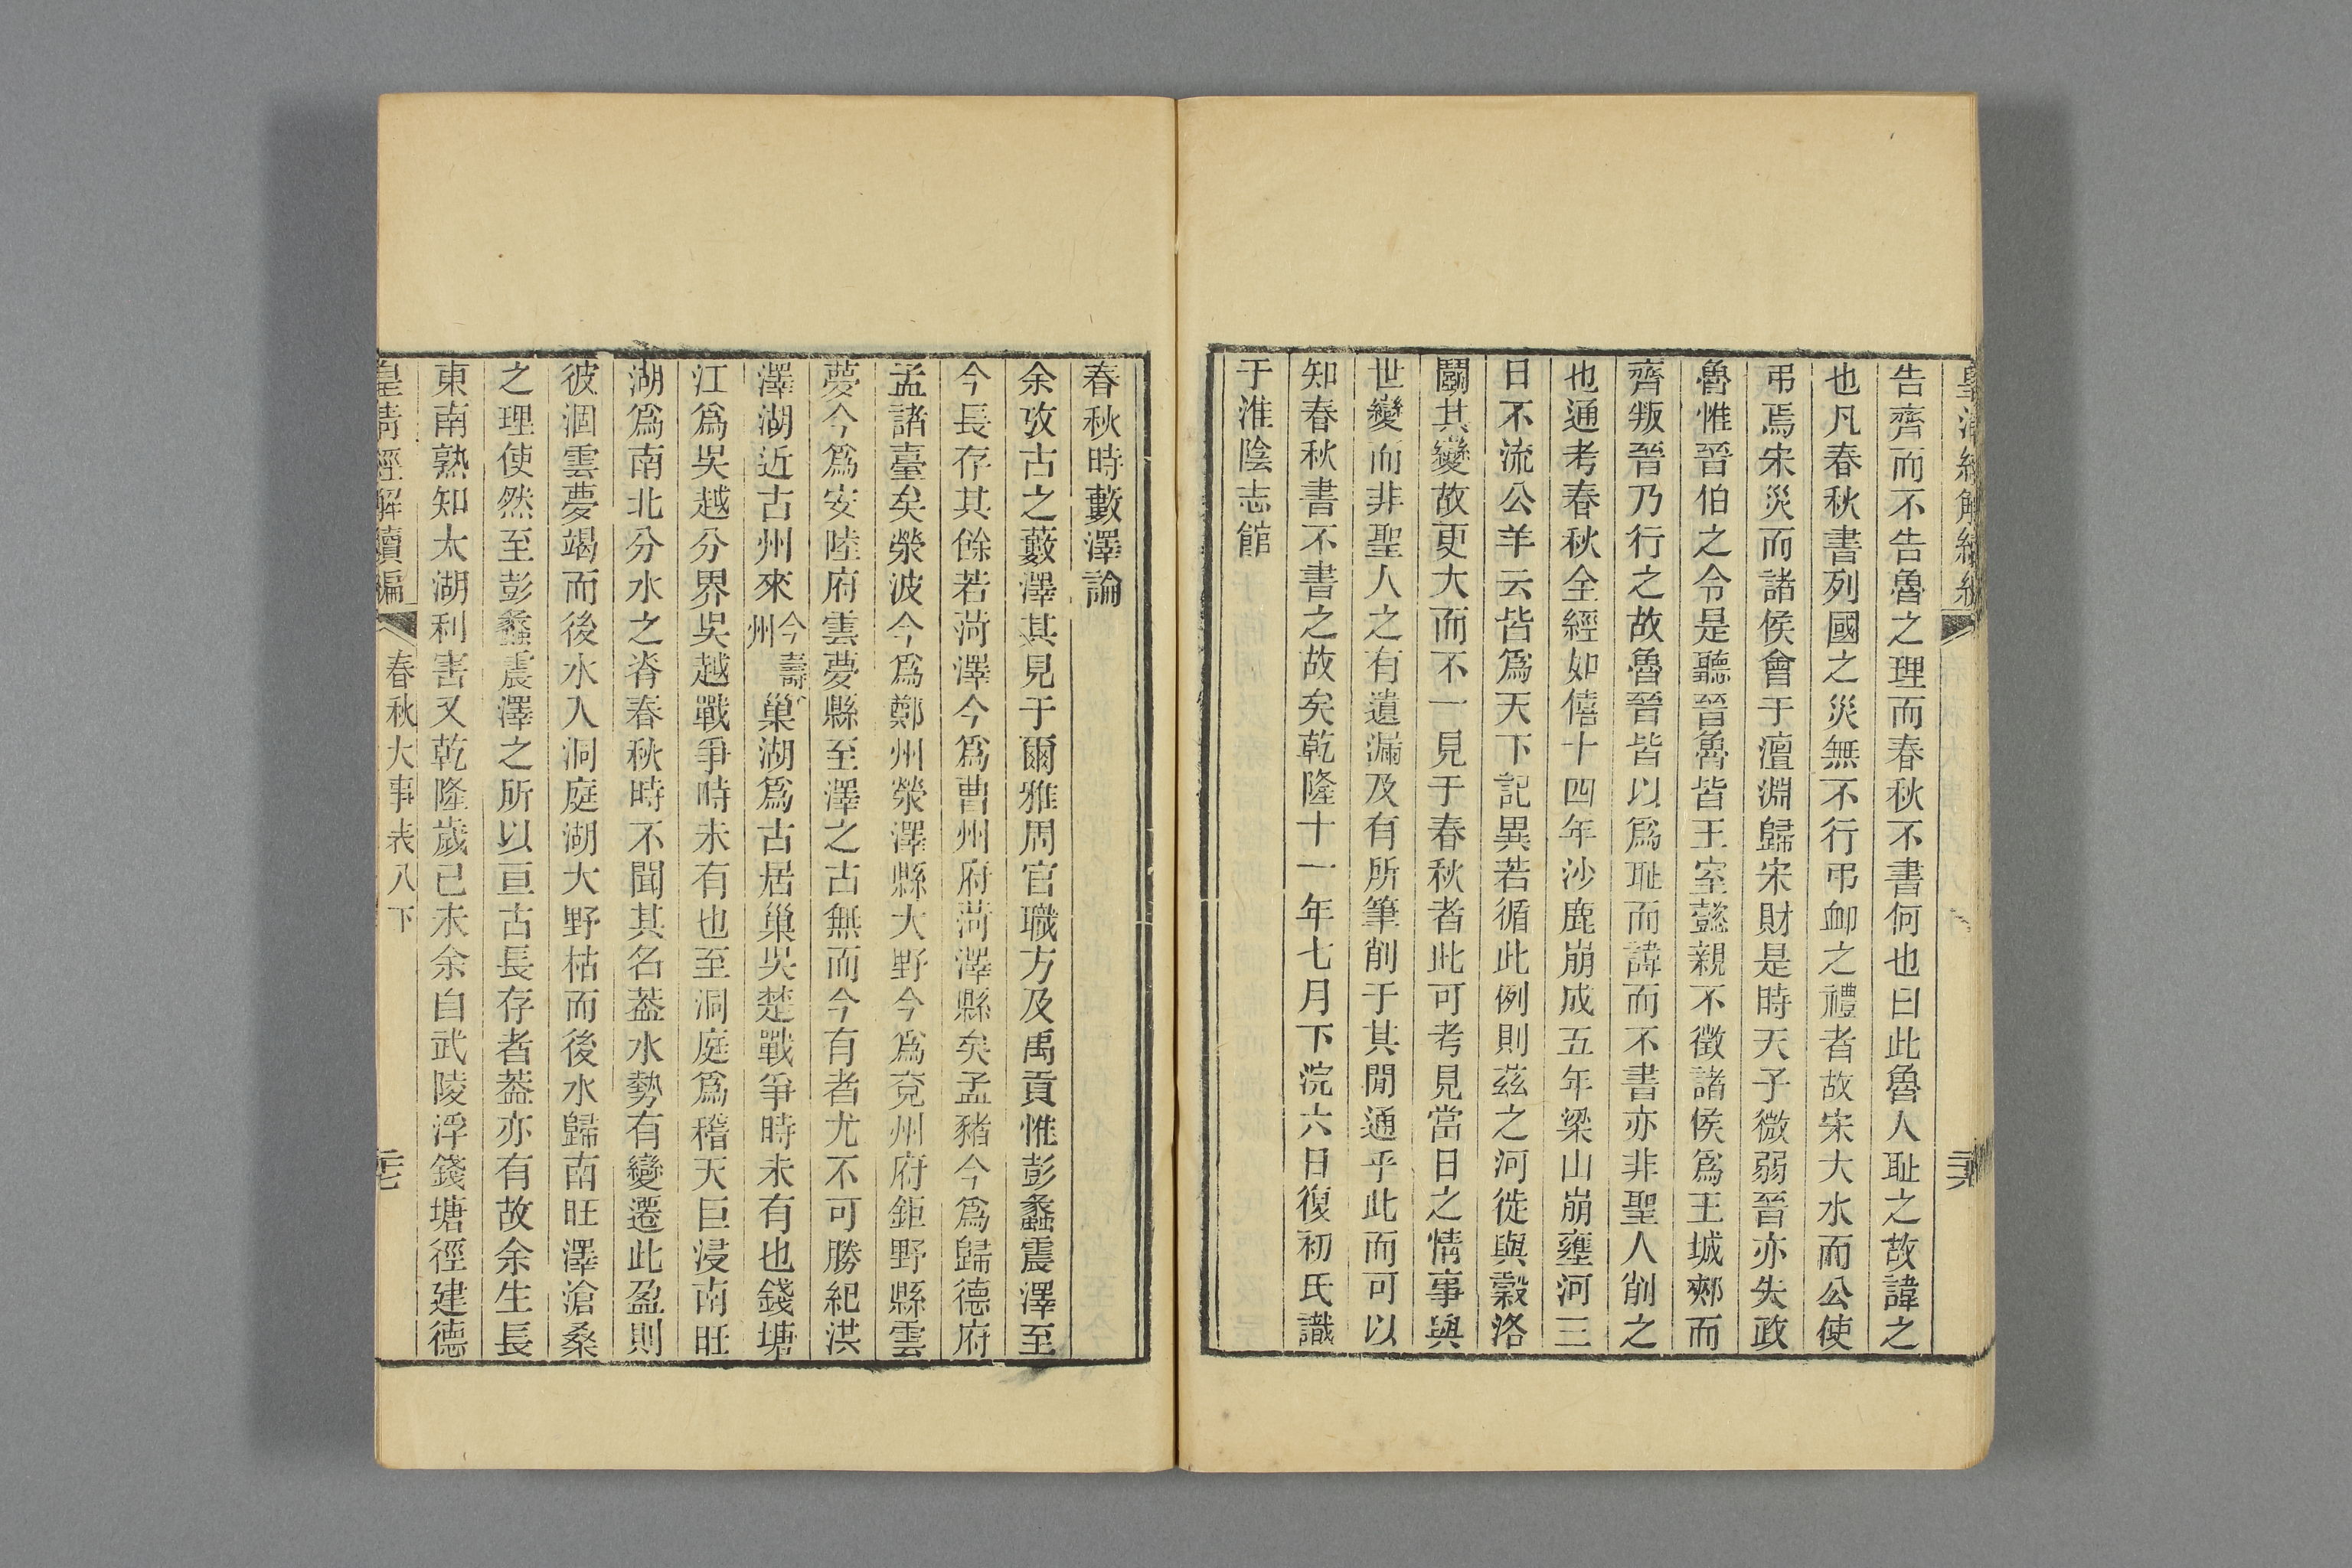 告齊而不告魯之理而春秋不書何也曰此魯人耻之故諱之
也凡春秋書列國之災無不行弔卹之禮者故宋大水而公使
弔焉宋災而諸侯會于澶淵歸宋財是時天子微弱晉亦失政
魯惟晉伯之令是聽晉魯皆王室懿親不徵諸侯爲王城郟而
齊叛晉乃行之故魯晉皆以爲耻而諱而不書亦非聖人削之
也通考春秋全經如僖十四年沙鹿崩成五年梁山崩壅河三
日不流公羊云皆爲天下記異若循此例則茲之河徙與穀洛
鬬其變故更大而不一見于春秋者此可考見當日之情事與
世變而非聖人之有遺漏及有所筆削于其閒通乎此而可以
知春秋書不書之故矣乾隆十一年七月下浣六日復初氏識
于淮陰志館
春秋時藪澤論
余攷古之藪澤其見于爾雅周官職方及禹貢惟彭蠡震澤至
今長存其餘若菏澤今爲曹州府菏澤縣矣孟豬今爲歸德府
孟諸臺矣滎波今爲鄭州滎澤縣大野今爲兗州府鉅野縣雲
夢今爲安陸府雲夢縣至澤之古無而今有者尤不可勝紀洪
澤湖近古州來今壽州巢湖爲古居巢吳楚戰爭時未有也錢塘
江爲吳越分界吳越戰爭時未有也至洞庭爲稽天巨浸南旺
湖爲南北分水之脊春秋時不聞其名葢水勢有變遷此盈則
彼涸雲夢竭而後水入洞庭湖大野枯而後水歸南旺澤滄桑
之理使然至彭蠡震澤之所以亘古長存者葢亦有故余生長
東南熟知太湖利害又乾隆歲己未余自武陵浮錢塘徑建德
皇清經解續編 春秋大事表八下 二十七